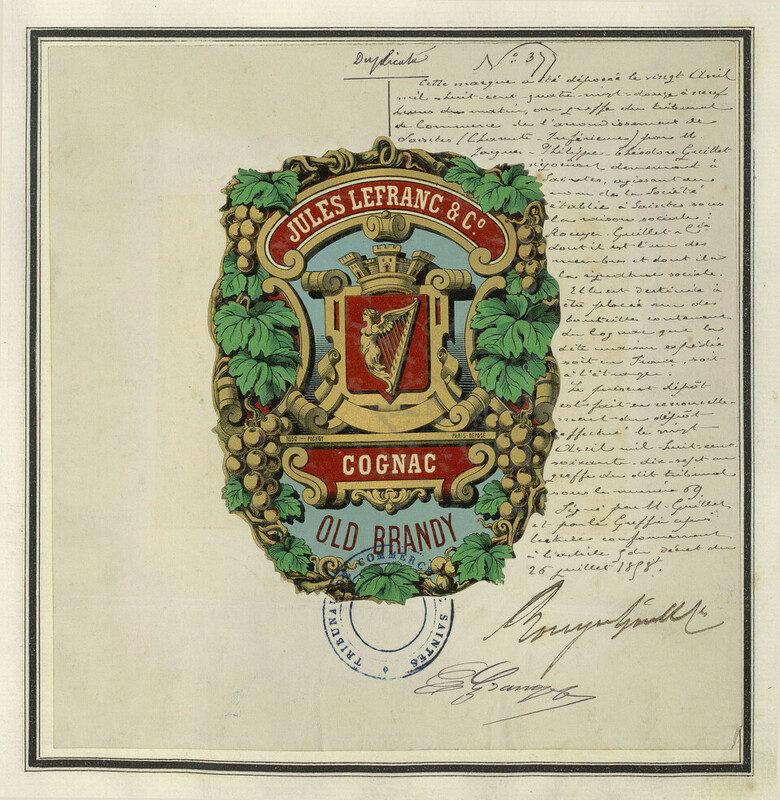 Duplicata
N° 37
Cette marque a été déposée le vingt Avril
mil huit cent quatre vingt-douze à neuf
heures du matin, au greffe du tribunal
de Commerce de l'arrondissement de
Saintes (Charente-Inférieure) par M.
Jacques-Philippe-Théodore Guillet
négociant demeurant à
Saintes, agissant au
nom de la Société
établie à Saintes sous
la raison sociale:
Rouyer-Guillet & Cie
dont il est l'un des
membres et dont il a
la signature sociale.
Elle est destinée à
être placée sur des
bouteilles contenant
du Cognac que la
dite maison expédie
soit en France, soit
à l'étranger.
Le présent dépôt
est fait en renouvelle-
ment du dépôt
effectué le vingt
Avril mil huit cent
soixante-dix-sept au
greffe du dit tribunal
sous le numéro 69.
Signé par M. Guillet
et par le Greffier après
lecture conformément
à l'article 5 du Décret du
26 juillet 1858.
Rouyer Guillet
JULES LEFRANC & Cº
1650 - PICHOT
PARIS-DÉPOSÉ
COGNAC
OLD BRANDY
TRIBUNAL DE COMMERCE SAINTES